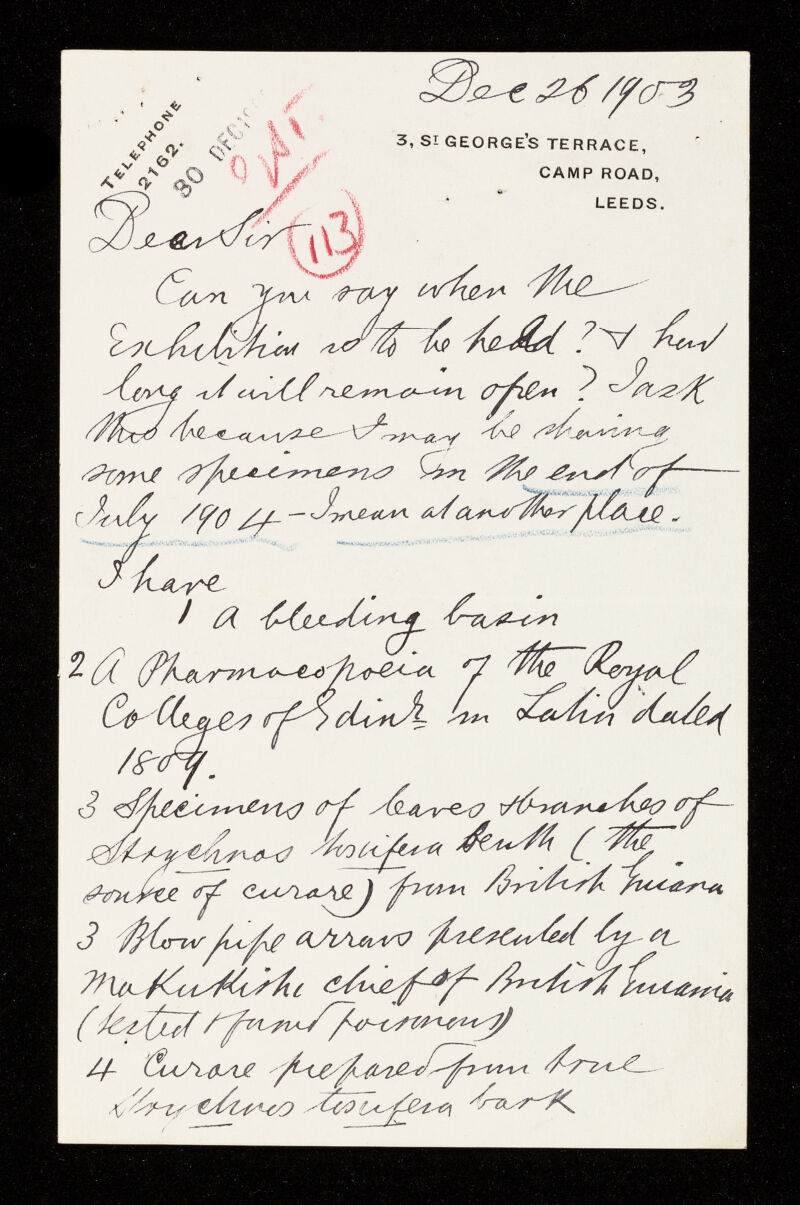 Dec 26 1903
TELEPHONE
2162.
30 DEC
3, ST GEORGE'S TERRACE,
CAMP ROAD,
LEEDS.
113
Dear Sir
Can you say when the
Exhibition is to be held? & how
long it will remain open? I ask
this because I may be showing
some specimens in the end of
July 1904 - I mean at another place.
I have
1 A bleeding basin
2 A Pharmacopoeia of the Royal
Colleges of Edinr in Latin dated
1809.
3 Specimens of leaves & branches of
Strychnos toxifera Benth (the
source of curare) from British Guiana
3 Blow pipe arrows presented by a
MaKuKishi chief of British Guiana
(tested & found poisonous)
4 Curare prepared from true
Strychnos toxifera bark